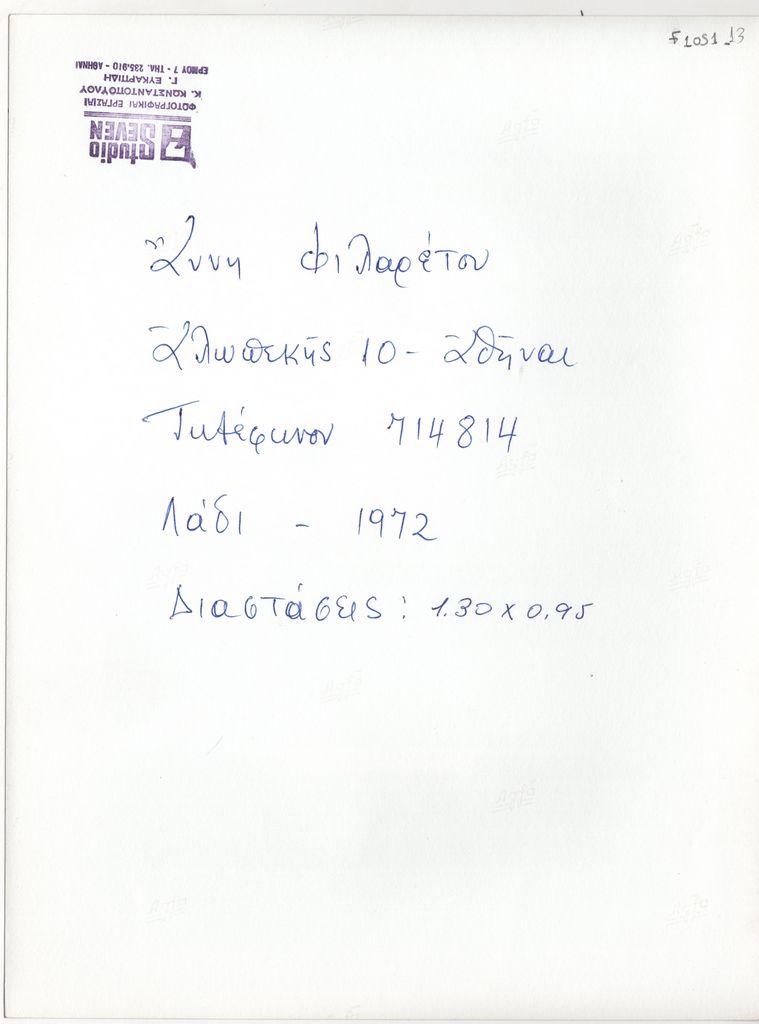 F1051_13
Studio
SEVEN
ΦΩΤΟΓΡΑΦΙΚΑΙ ΕΡΓΑΣΙΑΙ
Κ. ΚΩΝΣΤΑΝΤΟΠΟΥΛΟΥ
Γ. ΕΥΚΑΡΠΙΔΗ
ΕΡΜΟΥ 7 - ΤΗΛ. 235.910 - ΑΘΗΝΑΙ
Ἄννη Φιλαρέτου
Ἀλωπεκῆς 10 - Ἀθῆναι
Τηλέφωνον 714814
Λάδι - 1972
Διαστάσεις: 1.30 x 0,95